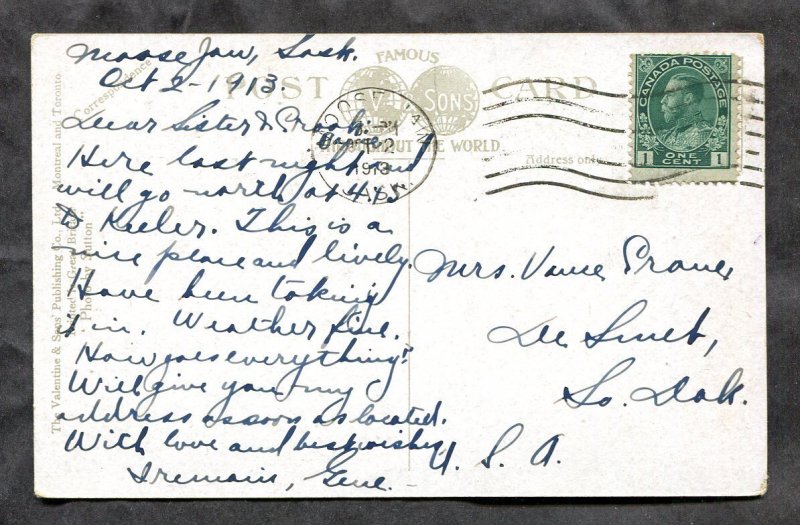 Moose Jaw, Sask.
Oct 2-1913.
FAMOUS
POST CARD
V & SONS
THROUGHOUT THE WORLD
Correspondence
Address only
The Valentine & Sons' Publishing Co., Ltd. Montreal and Toronto
Printed in Great Britain
Photo by Sutton
MOOSE JAW
1913
SASK.
CANADA POSTAGE
1 ONE CENT 1
Dear Sister &
Here last night and
will go north at 4.15
to Keeler. This is a
nice place and lively.
Have been taking
in. Weather fine.
How goes everything?
Will give you my
address as soon as located.
With love and best wishes
I remain, Gene
Mrs. Vance
De Smet,
So. Dak.
U. S. A.